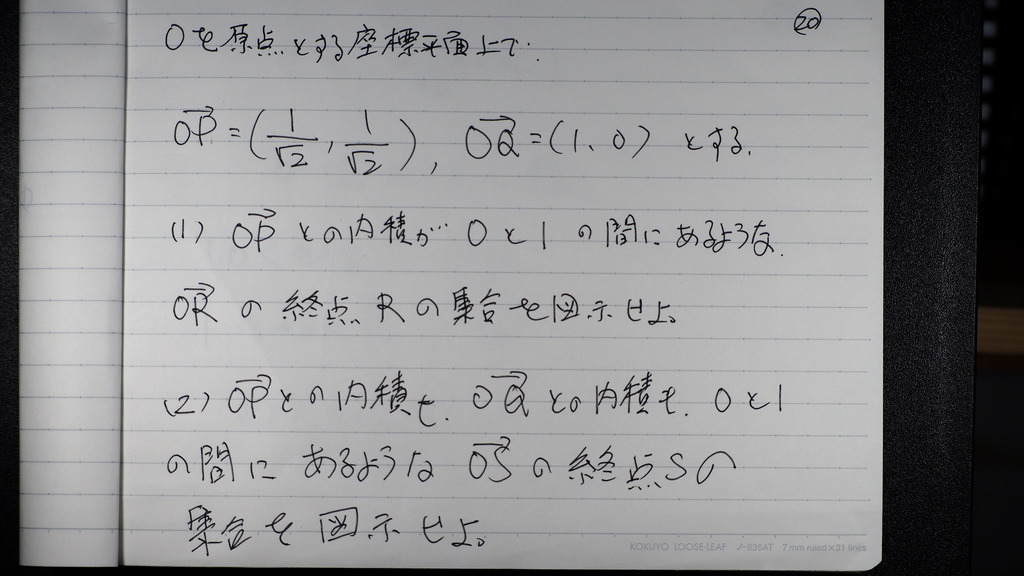 ⑳
Oを原点とする座標平面上で.
→OP = (1/√2, 1/√2), →OQ = (1, 0) とする.
(1) →OP との内積が 0と1の間にあるような.
→OR の終点Rの集合を図示せよ。
(2) →OPとの内積も. →OQとの内積も. 0と1
の間にあるような →OS の終点Sの
集合を図示せよ。
KOKUYO LOOSE-LEAF ノ-836AT 7 mm ruled×31 lines